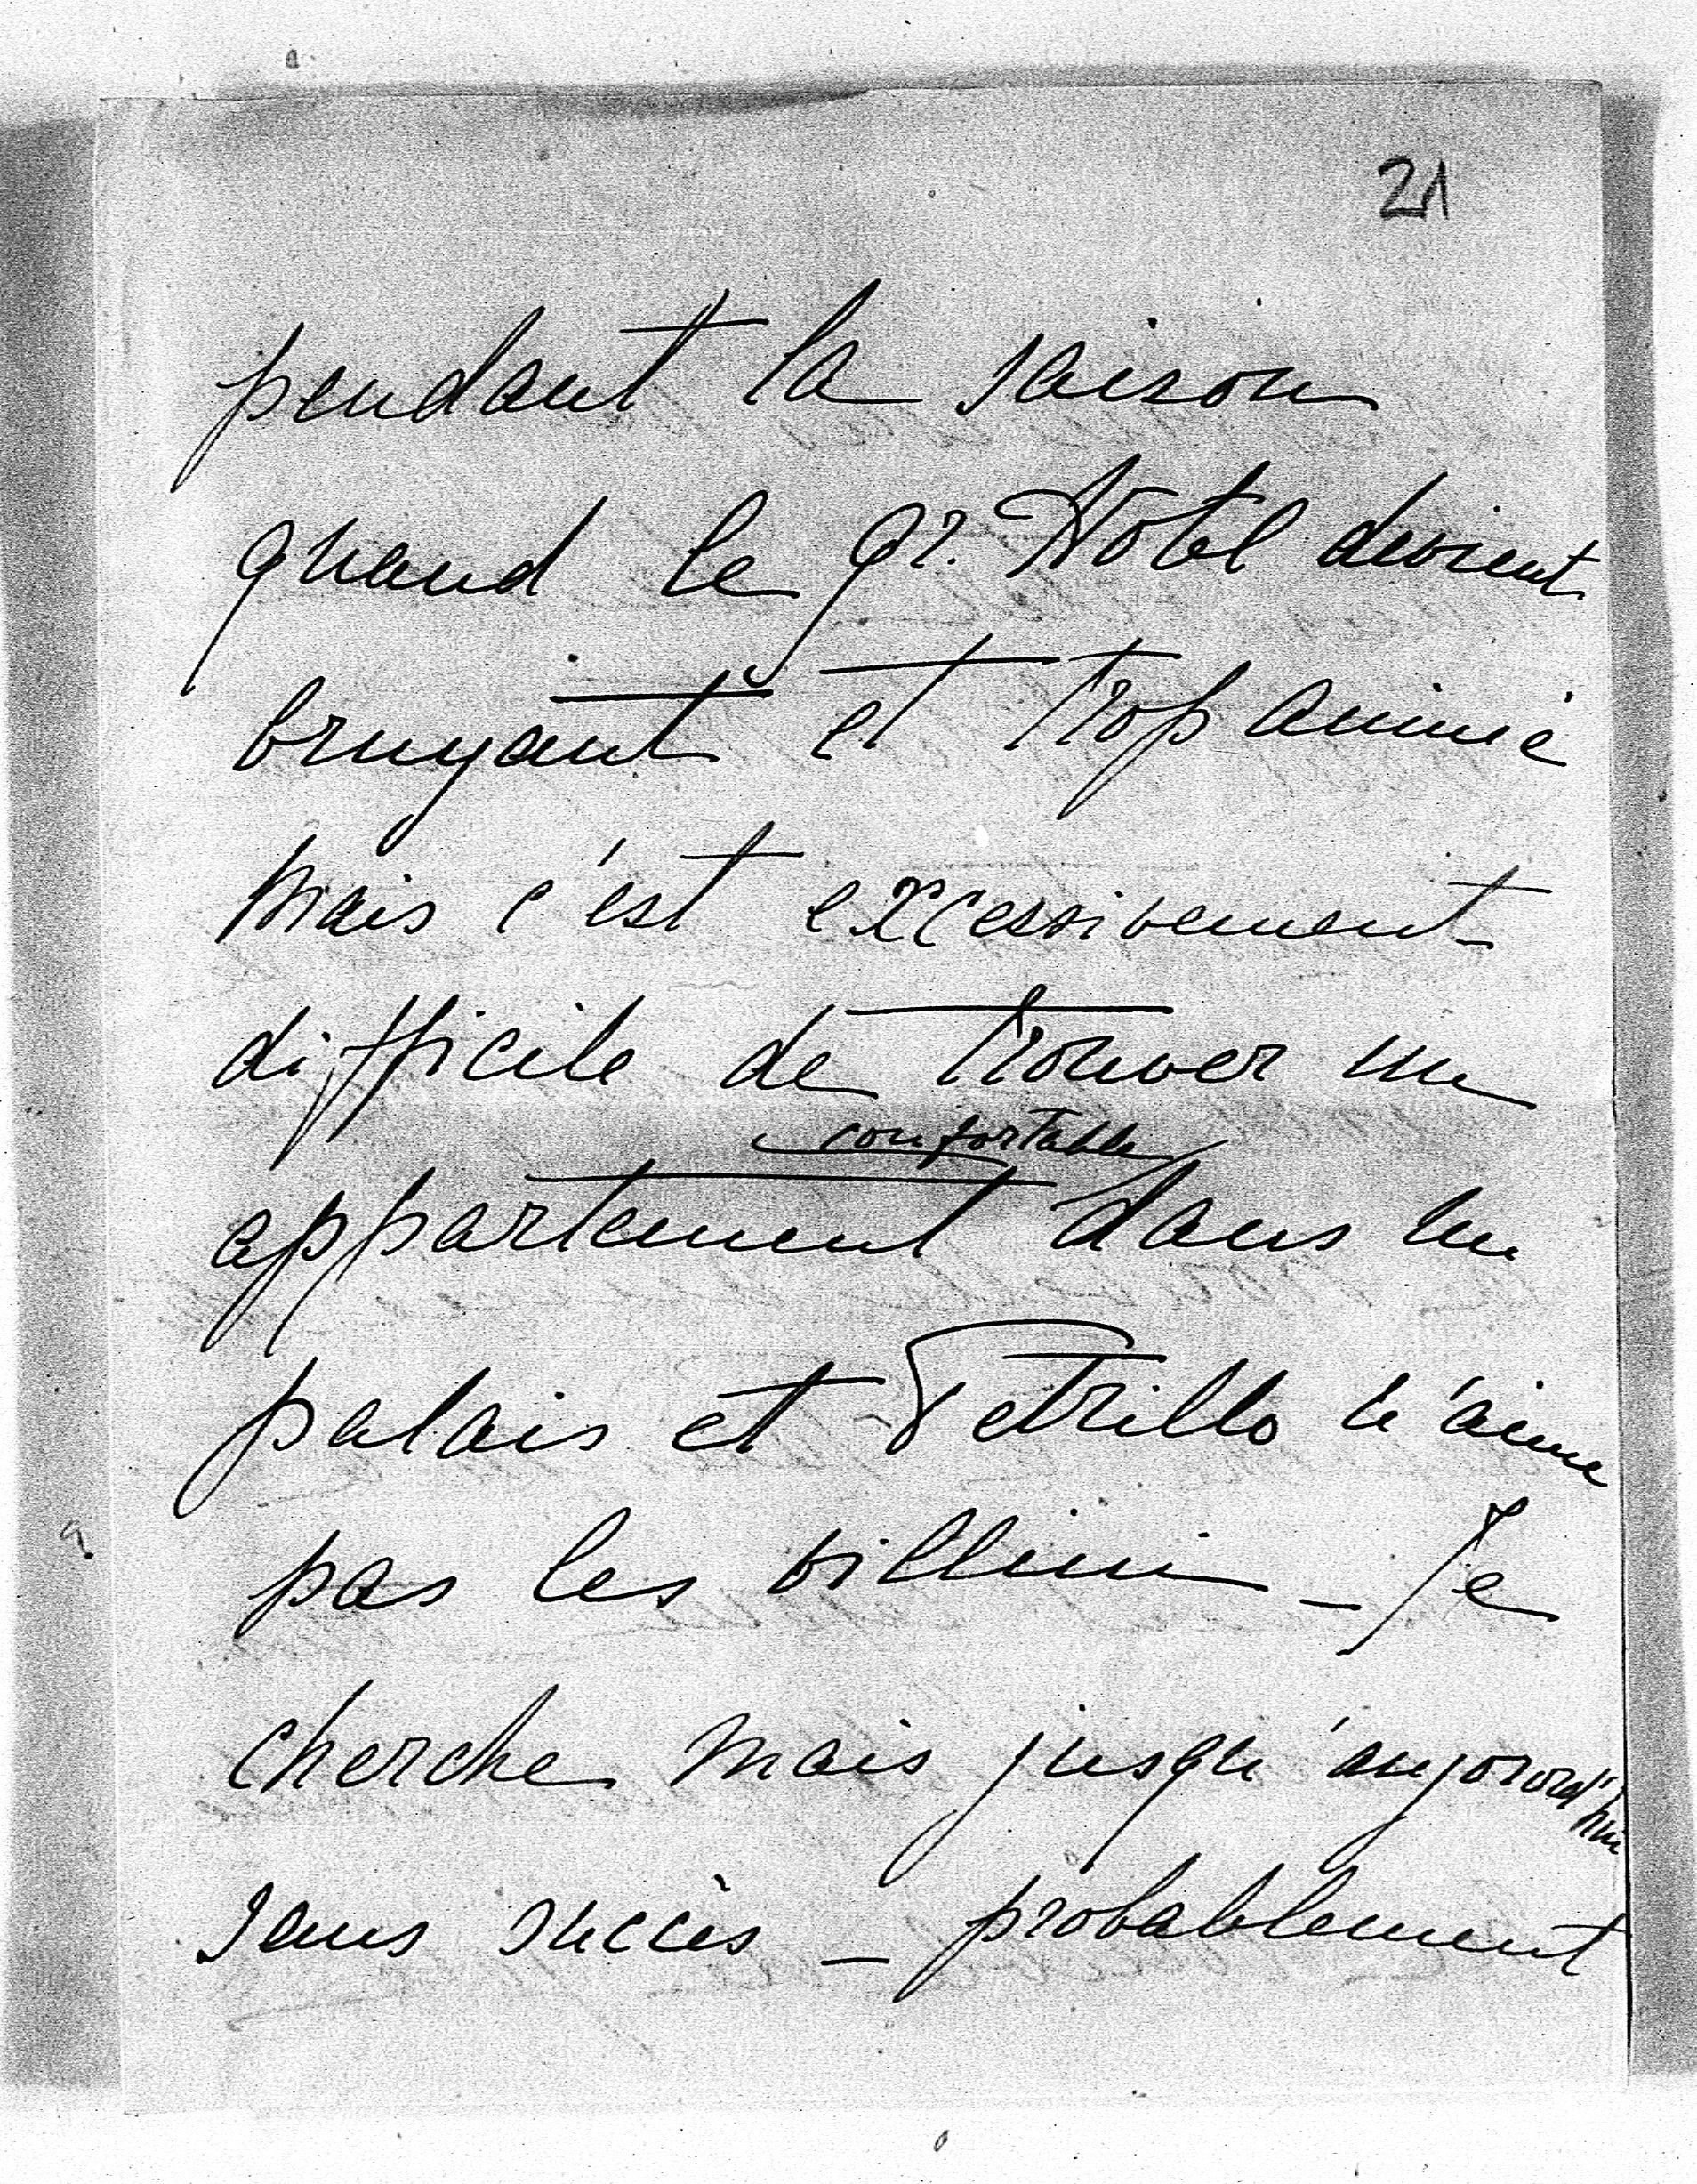 21
pendant la saison
quand le Gr. Hôtel devient
bruyant et trop animé
mais c'est excessivement
difficile de trouver un
confortable
appartement dans un
palais et Petrillo n'aime
pas les villini _ Je
cherche mais jusqu'aujourd'hui
sans succès _ probablement